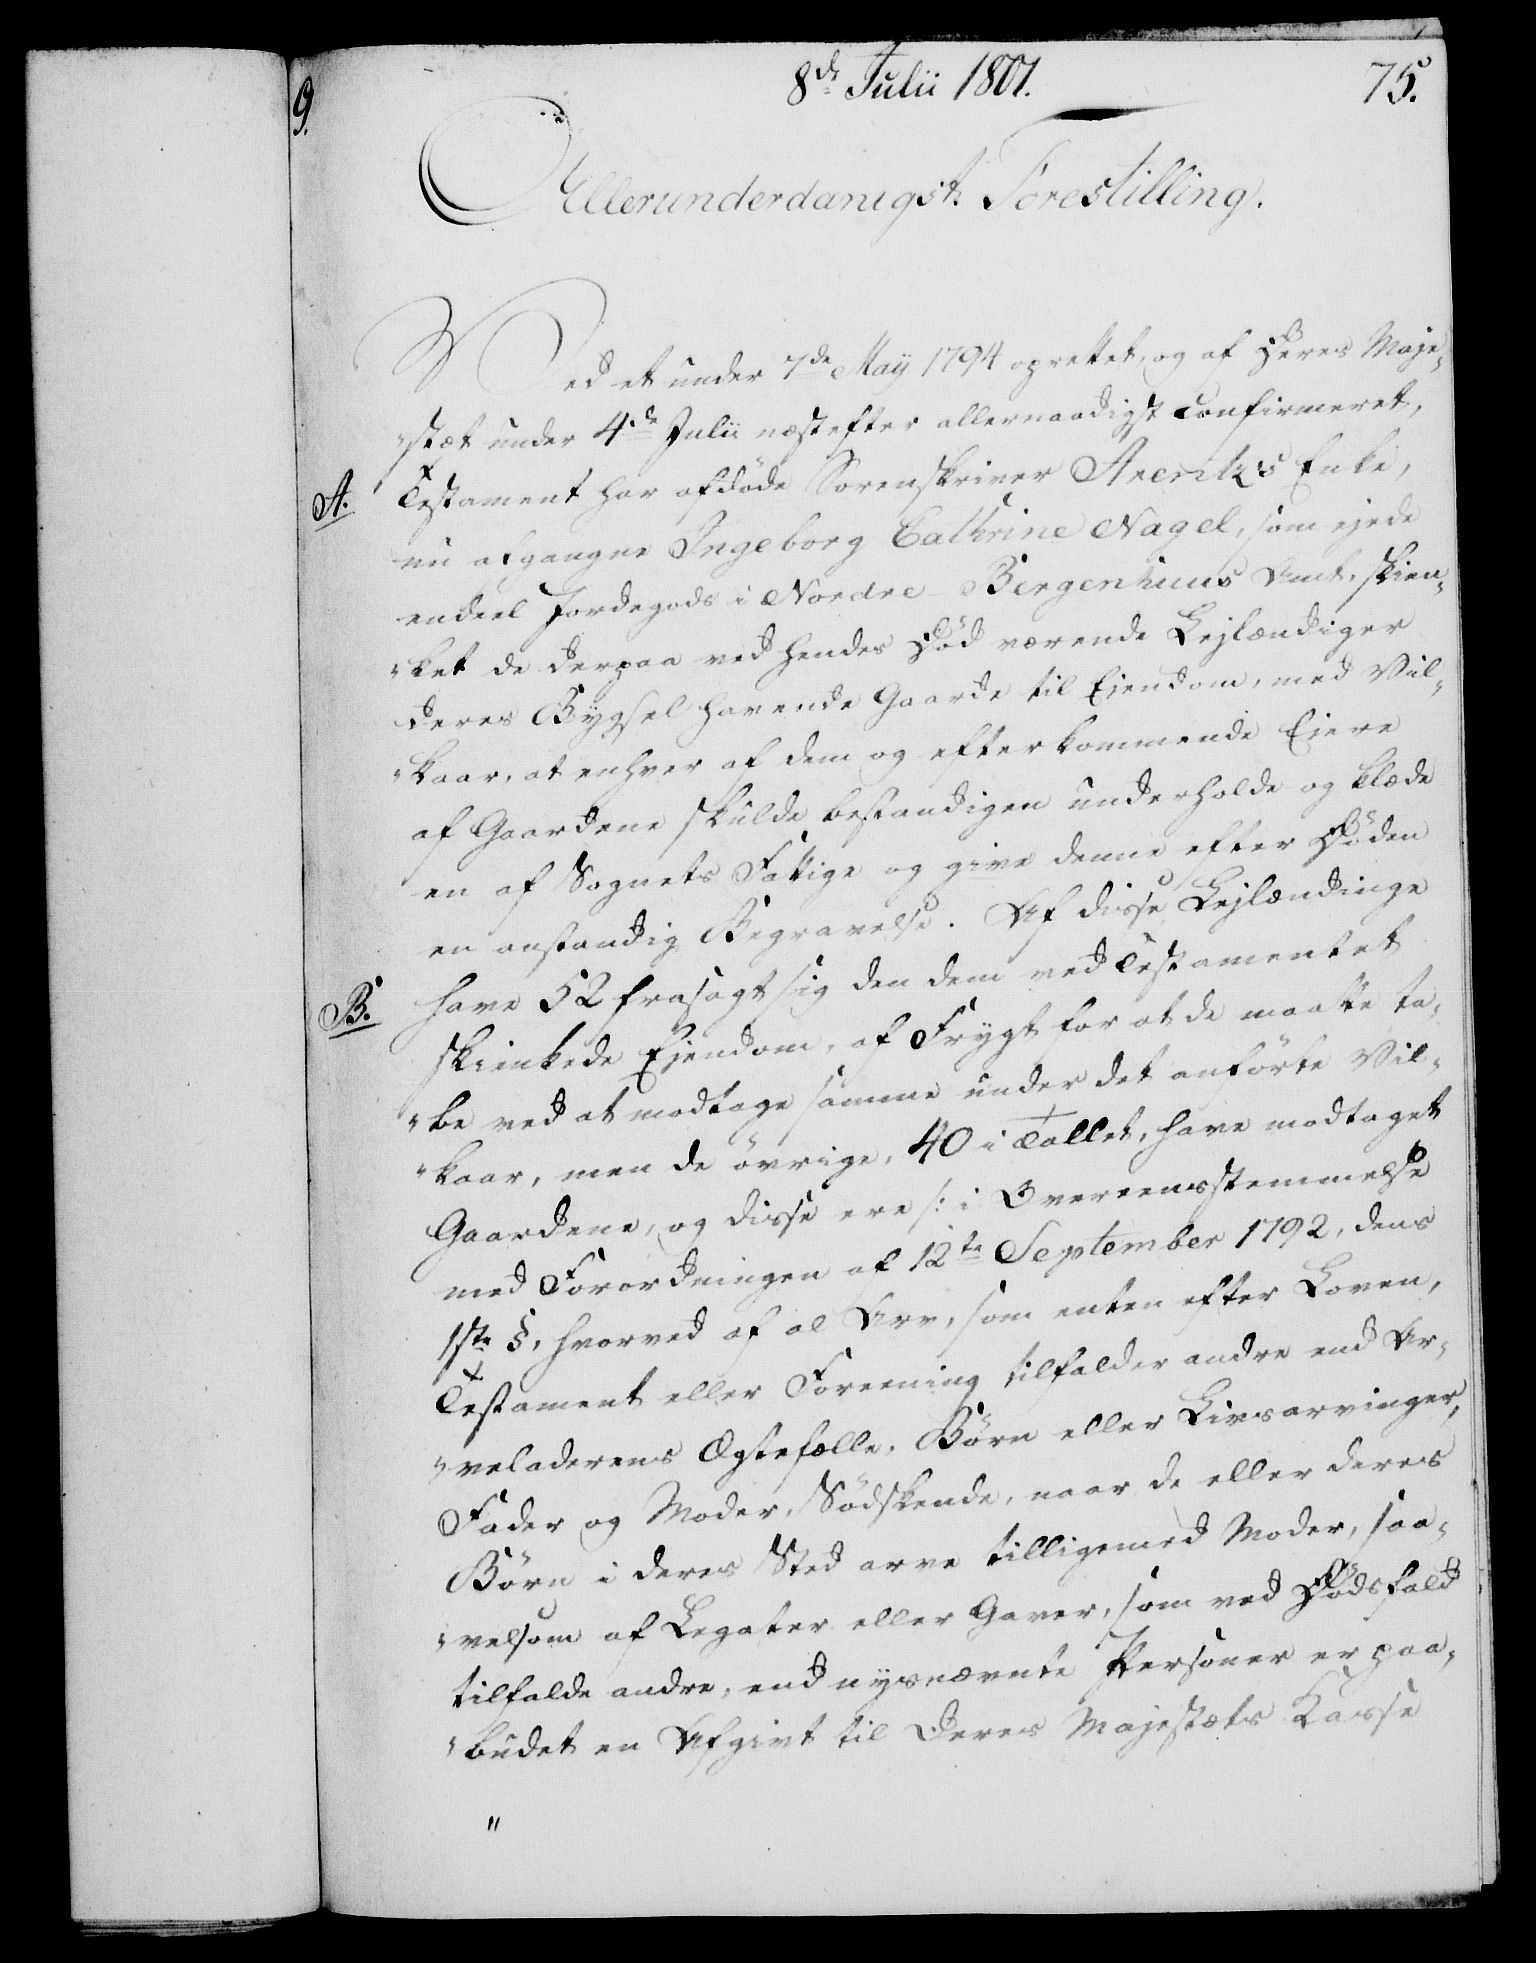 8de Julii 1801.
75.
9.
Allerunderdanigst Forestilling.
Ved et under 7de May 1794 oprettet, og af Deres Maje-
"stæt under 4de Julii næstefter allernaadigst confirmeret,
A.
Testament har afdøde Sorenskriver Arentz's Enke,
nu afgangne Ingeborg Cathrine Nagel, som ejede
endeel Jordegods i Nordre Bergenhuus Amt, skien-
"ket de derpaa ved hendes Død værende Lejlændiger
deres Bygsel havende Gaarde til Ejendom, med Vil-
"kaar, at enhver af dem og efterkommende Eiere
af Gaardene skulde bestandigen underholde og klæde
en af Sognets Fattige og give denne efter Døden
en anstændig Begravelse. Af disse Lejlændinge
B.
have 52 frasagt sig den dem ved Testamentet
skienkede Ejendom, af Frygt for at de maatte ta-
"be ved at modtage samme under det anførte Vil-
"kaar, men de øvrige, 40 i Tallet, have modtaget
Gaardene, og disse ere /: i Overeensstemmelse
med Forordningen af 12te September 1792, dens
1ste §, hvorved af al Arv, som enten efter Loven,
Testament eller Foreening tilfalder andre end Ar-
"veladerens Ægtefælle, Børn eller Livsarvinger,
Fader og Moder, Sødskende, naar de eller deres
Børn i deres Sted arve tilligemed Moder, saa-
"velsom af Legater eller Gaver, som ved Dødsfald
tilfalde andre, end nysnævnte Personer er paa-
"budet en Afgivt til Deres Majestæts Kasse
"